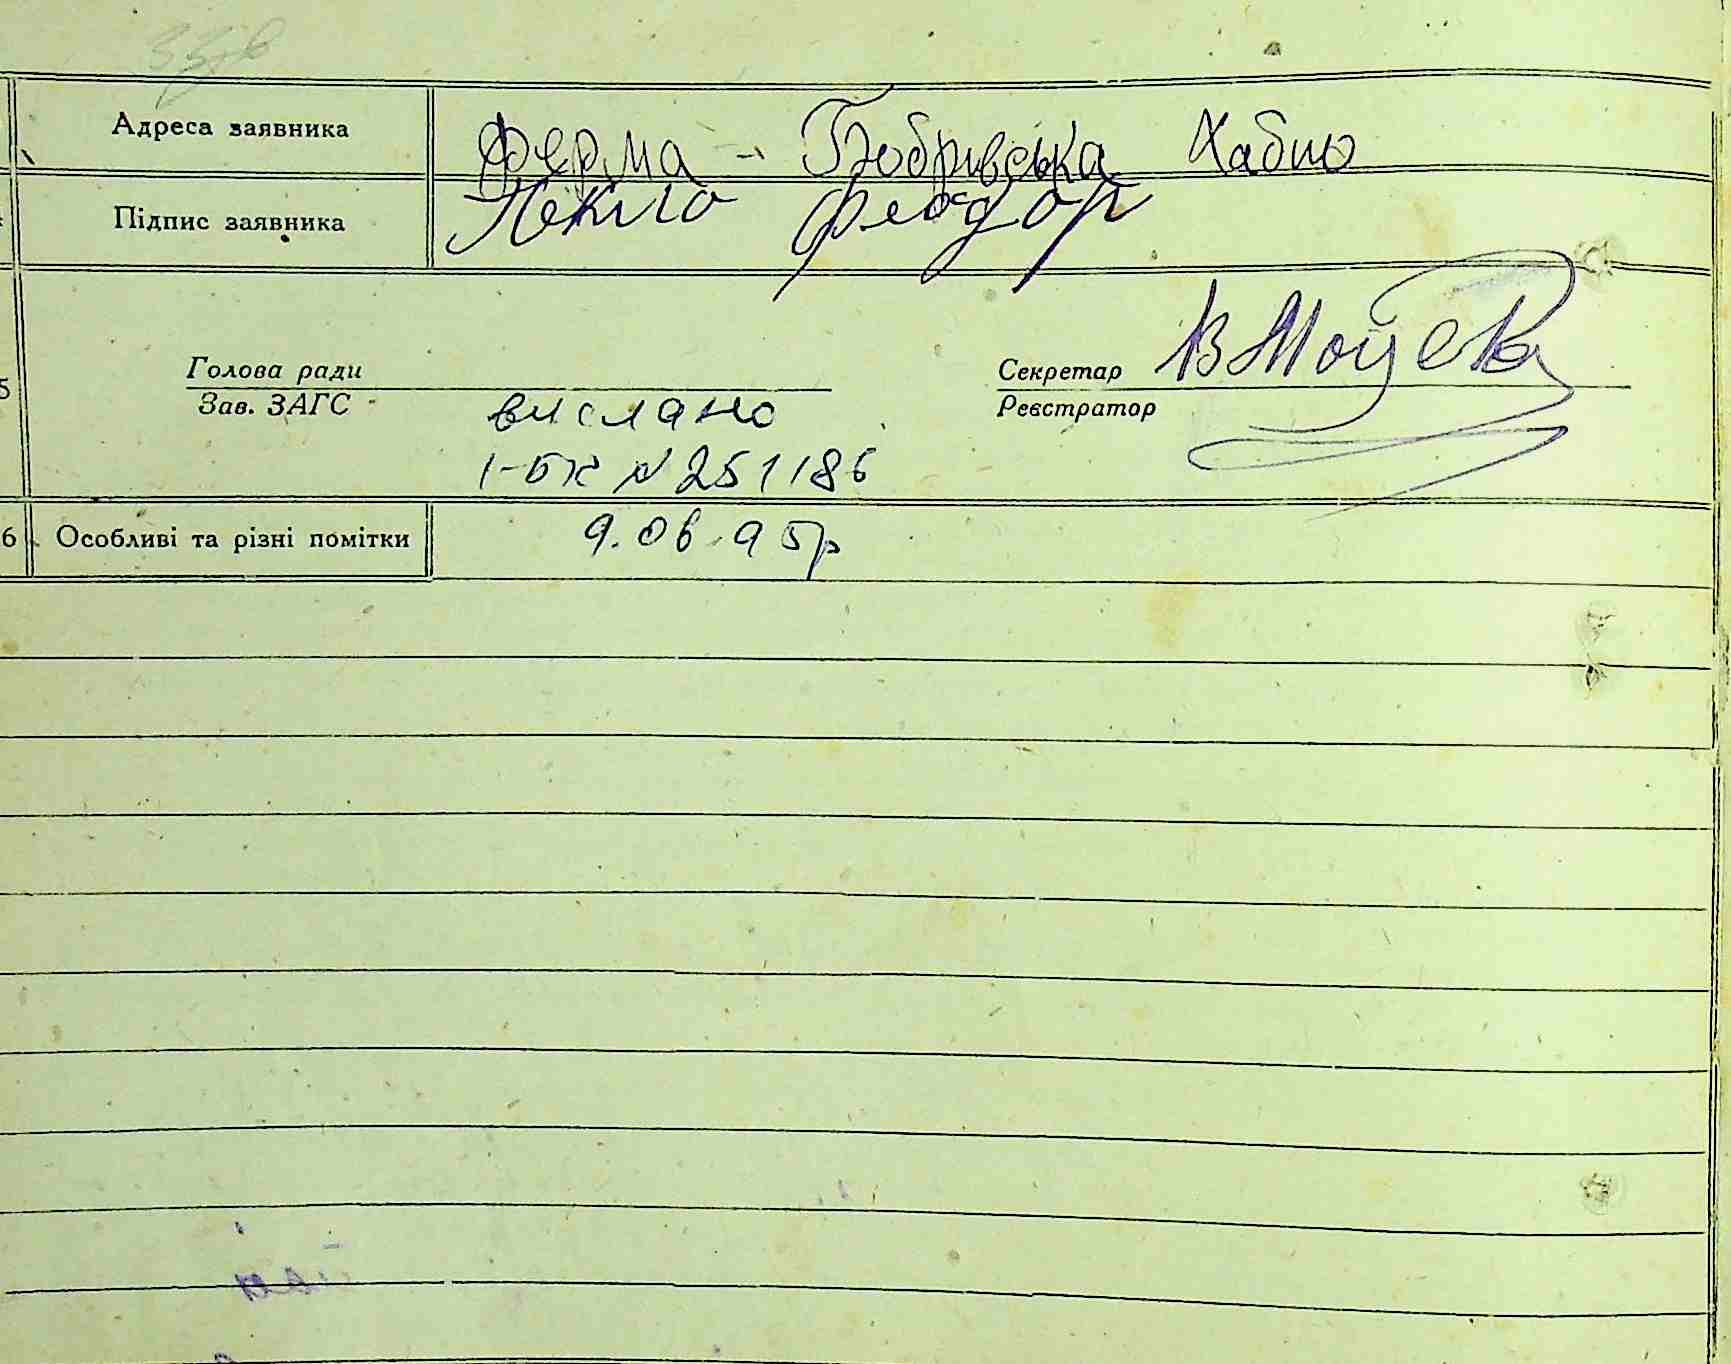 Адреса заявника Ферма - Бобривська Хабно
Підпис заявника Пекло Феодор
Голова ради
Зав. ЗАГС
Секретар
Реєстратор
5
вислано
1-БК N 251186
6 Особливі та різні помітки 9.06.95р